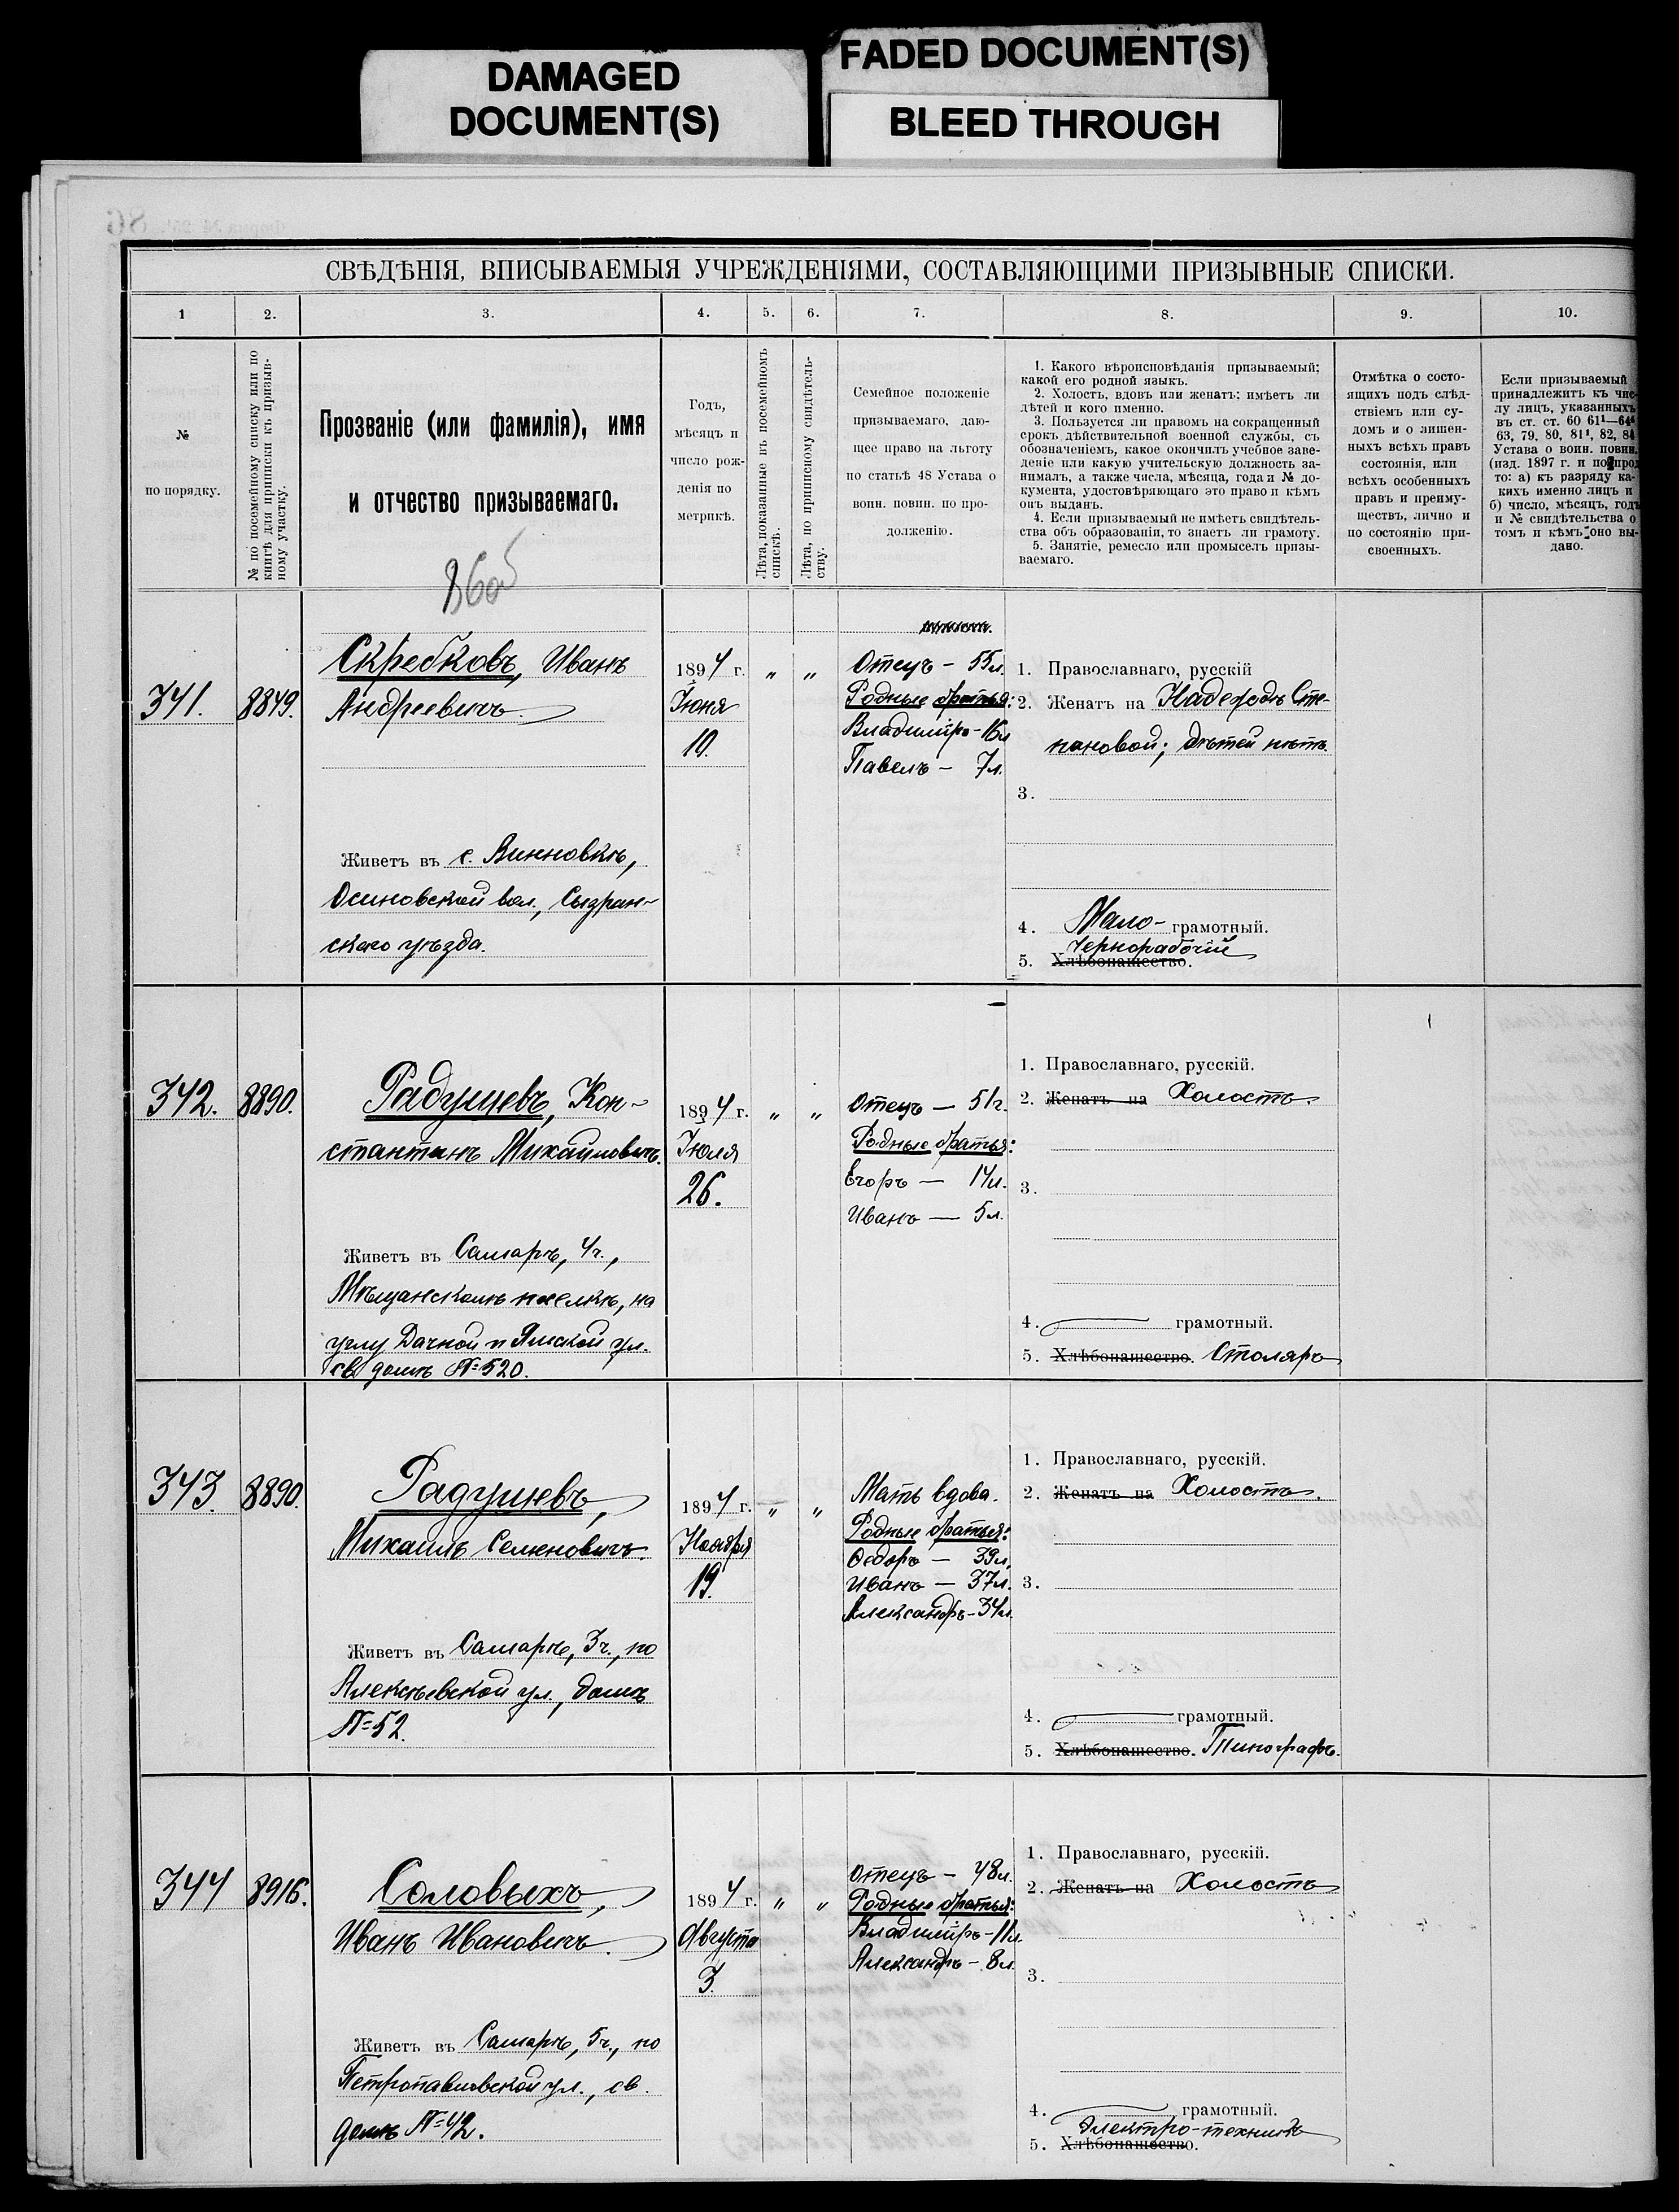 DAMAGED
DOCUMENT(S)
FADED DOCUMENT(S)
BLEED THROUGH
СВѢДѢНІЯ, ВПИСЫВАЕМЫЯ УЧРЕЖДЕНІЯМИ, СОСТАВЛЯЮЩИМИ ПРИЗЫВНЫЕ СПИСКИ.
1 2. 3. 4. 5. 6. 7. 8. 9. 10.
№
по порядку.
№ по посемейному списку или по
книгѣ для приписки къ призыв-
ному участку.
Прозваніе (или фамилія), имя
и отчество призываемаго.
Годъ,
мѣсяцъ и
число рож-
денія по
метрикѣ.
Лѣта, показанные въ посемейномъ
спискѣ.
Лѣта, по приписному свидѣтель-
ству.
Семейное положеніе
призываемаго, даю-
щее право на льготу
по статьѣ 48 Устава о
воин. повин. по про-
долженію.
1. Какого вѣроисповѣданія призываемый;
какой его родной языкъ.
2. Холостъ, вдовъ или женатъ; имѣетъ ли
дѣтей и кого именно.
3. Пользуется ли правомъ на сокращенный
срокъ дѣйствительной военной службы, съ
обозначеніемъ, какое окончилъ учебное заве-
деніе или какую учительскую должность за-
нималъ, а также числа, мѣсяца, года и № до-
кумента, удостовѣряющаго это право и кѣмъ
онъ выданъ.
4. Если призываемый не имѣетъ свидѣтель-
ства объ образованіи, то знаетъ ли грамоту.
5. Занятіе, ремесло или промыселъ призы-
ваемаго.
Отмѣтка о состо-
ящихъ подъ слѣд-
ствіемъ или су-
домъ и о лишен-
ныхъ всѣхъ правъ
состоянія, или
всѣхъ особенныхъ
правъ и преиму-
ществъ, лично и
по состоянію при-
своенныхъ.
Если призываемый
принадлежитъ къ чис-
лу лицъ, указанныхъ
въ ст. ст. 60 61¹—64⁴
63, 79, 80, 81¹, 82, 84
Устава о воин. повин.
(изд. 1897 г. и по прод
то: а) къ разряду ка-
кихъ именно лицъ и
б) число, мѣсяцъ, годъ
и № свидѣтельства о
томъ и кѣмъ оно вы-
дано.
86об
341.
8849.
Скребковъ, Иванъ
Андреевичъ.
Живетъ въ с. Винновкѣ,
Осиновской вол., Сызран-
скаго уѣзда.
1894 г.
Іюня
10.
„ „
Отецъ – 55 л.
Родные братья:
Владимiръ – 16 л
Павелъ – 7 л.
1. Православнаго, русскій
2. Женатъ на Надеждѣ Сте-
пановой; дѣтей нѣтъ
3.
4. Мало-грамотный.
Чернорабочій
5. Хлѣбопашество.
342.
8890.
Радушевъ, Кон-
стантинъ Михайловичъ.
Живетъ въ Самарѣ, 4 ч.,
Мѣщанскомъ поселкѣ, на
углу Дачной и Ямской ул.
св домъ № 520.
1894 г.
Іюля
26.
„ „
Отецъ — 51 г.
Родные братья:
Егоръ — 14 л.
Иванъ — 5 л.
1. Православнаго, русскій.
2. Женатъ на Холостъ.
3.
4. грамотный.
5. Хлѣбопашество. Столяръ
343.
8890.
Радушевъ,
Михаилъ Семеновичъ.
Живетъ въ Самарѣ, 3 ч., по
Алексѣевской ул., домъ
№ 52.
1894 г.
Ноября
19.
„ „
Мать вдова.
Родные братья:
Ѳедоръ — 39 л,
Иванъ — 37 л.
Александръ – 34 л.
1. Православнаго, русскій.
2. Женатъ на Холостъ.
3.
4. грамотный.
5. Хлѣбопашество. Типографъ.
344
8916.
Соловыхъ,
Иванъ Ивановичъ.
Живетъ въ Самарѣ, 5 ч., по
Петропавловской ул., св.
домъ № 42.
1894 г.
Августа
3.
„ „
Отецъ – 48 л.
Родные братья:
Владимiръ – 11 л.
Александръ – 8 л.
1. Православнаго, русскій.
2. Женатъ на Холостъ
3.
4. грамотный.
Электро-техникъ
5. Хлѣбопашество.